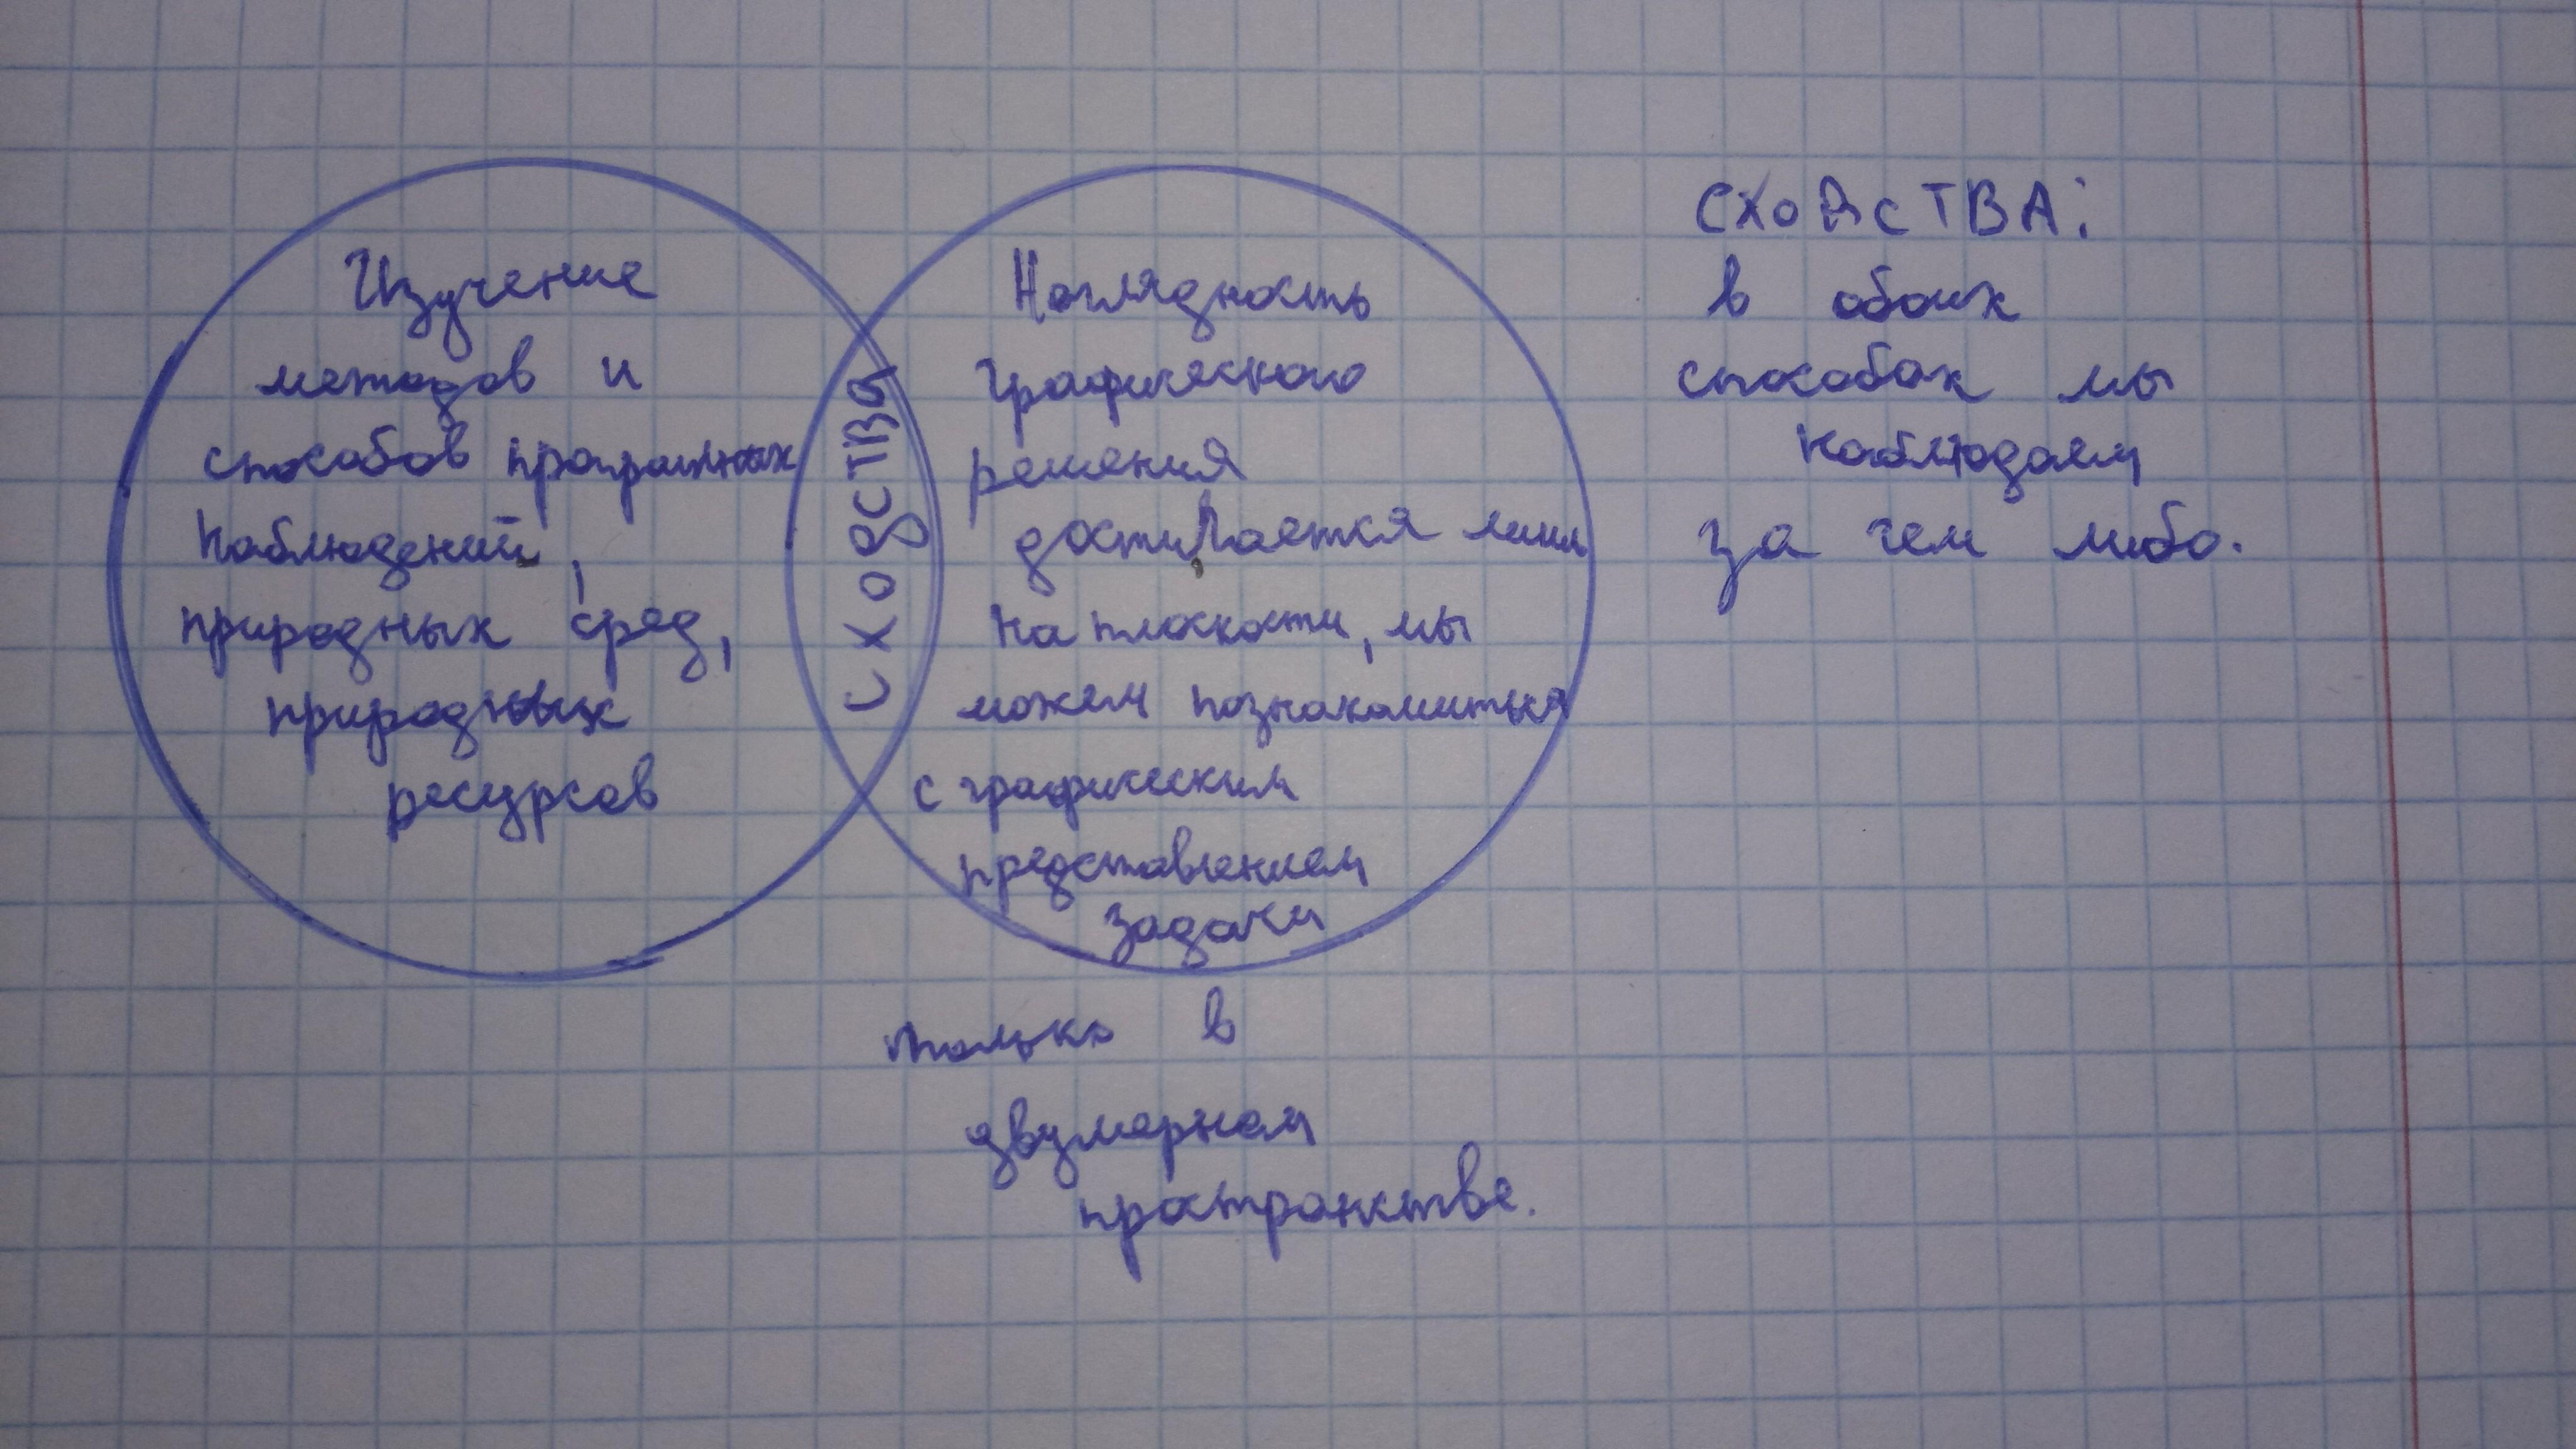 Изучение
методов и
способов програмных
наблюдений,
природных сред,
природных
ресурсов
сходства
Наглядность
графического
решения
достигается лиш
на плоскости, мы
можем познакомиться
с графическим
представлением
задачи
только в
двумерном
пространстве.
СХОДСТВА:
в обоих
способах мы
наблюдаем
за чем либо.